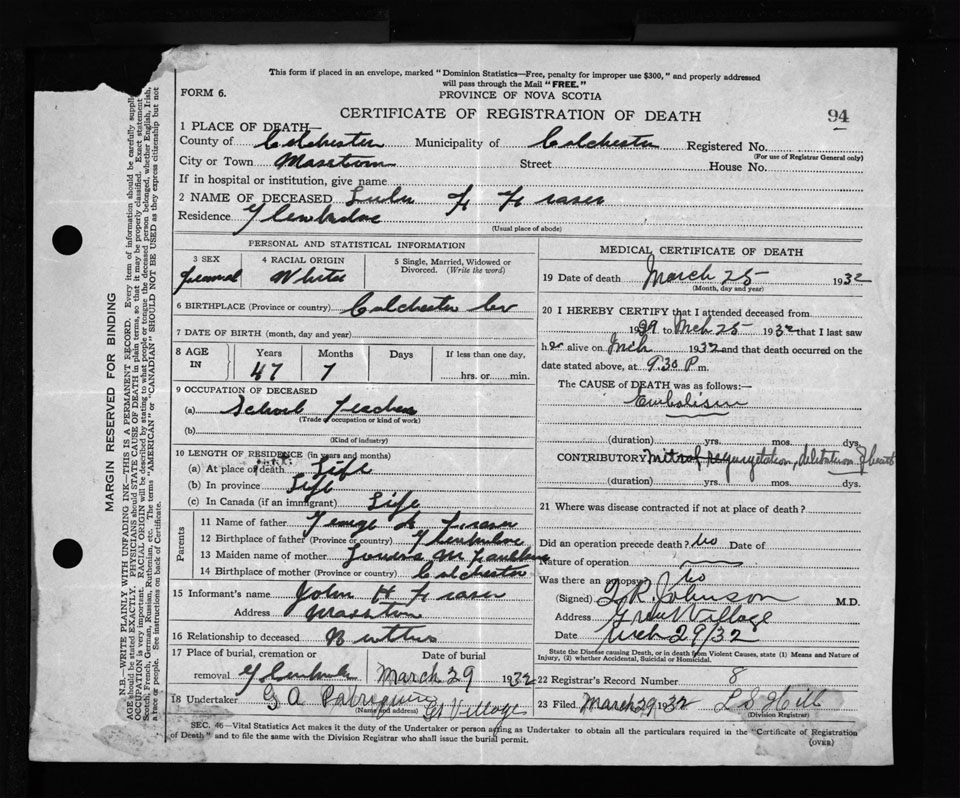 This form if placed in an envelope, marked "Dominion Statistics—Free, penalty for improper use $300," and properly addressed
will pass through the Mail "FREE."
FORM 6.
PROVINCE OF NOVA SCOTIA
CERTIFICATE OF REGISTRATION OF DEATH
94
1 PLACE OF DEATH—
County of Colchester Municipality of Colchester Registered No.
(For use of Registrar General only)
City or Town Masstown Street House No.
If in hospital or institution, give name
2 NAME OF DECEASED F Fraser
Residence Glenholme
(Usual place of abode)
PERSONAL AND STATISTICAL INFORMATION
3 SEX 4 RACIAL ORIGIN 5 Single, Married, Widowed or
Divorced. (Write the word)
White
6 BIRTHPLACE (Province or country) Colchester Co
7 DATE OF BIRTH (month, day and year)
8 AGE IN Years Months Days If less than one day,
47 7 hrs. or min.
9 OCCUPATION OF DECEASED
(a) School Teacher
(Trade or occupation or kind of work)
(b)
(Kind of industry)
10 LENGTH OF RESIDENCE (in years and months)
(a) At place of death Life
(b) In province Life
(c) In Canada (if an immigrant) Life
Parents
11 Name of father George Fraser
12 Birthplace of father (Province or country) Glenholme
13 Maiden name of mother Louisa M
14 Birthplace of mother (Province or country) Colchester
15 Informant's name John H Fraser
Address Masstown
16 Relationship to deceased Brother
17 Place of burial, cremation or Date of burial
removal Glenholme March 29 1932
18 Undertaker G A
(Name and address) Gt Village
MEDICAL CERTIFICATE OF DEATH
19 Date of death March 25 1932
(Month, day and year)
20 I HEREBY CERTIFY that I attended deceased from
1929 to Mch 25 1932 that I last saw
her alive on Mch 1932 and that death occurred on the
date stated above, at 9.30 P m.
The CAUSE of DEATH was as follows:—
Embolism
(duration) yrs. mos. dys.
CONTRIBUTORY Mitral regurgitation, dilatation of heart
(duration) yrs. mos. dys.
21 Where was disease contracted if not at place of death?
Did an operation precede death? No Date of
Nature of operation
Was there an autopsy? No
(Signed) R. Johnson M.D.
Address Great Village
Date Mch 29/32
State the Disease causing Death, or in death from Violent Causes, state (1) Means and Nature of
Injury, (2) whether Accidental, Suicidal or Homicidal.
22 Registrar's Record Number 8
23 Filed March 29 1932 L S Hill
(Division Registrar)
SEC. 46—Vital Statistics Act makes it the duty of the Undertaker or person acting as Undertaker to obtain all the particulars required in the "Certificate of Registration
of Death" and to file the same with the Division Registrar who shall issue the burial permit.
(OVER)
MARGIN RESERVED FOR BINDING
N.B.—WRITE PLAINLY WITH UNFADING INK—THIS IS A PERMANENT RECORD. Every item of information should be carefully
AGE should be stated EXACTLY. PHYSICIANS should STATE CAUSE OF DEATH in plain terms, so that it may be properly classified. Exact statement
OCCUPATION is very important. RACIAL ORIGIN will be described by stating to what people or tongue the deceased person belonged, whether English, Irish,
Scotch, French, German, Russian, Ruthenian, etc. The terms "AMERICAN" or "CANADIAN" SHOULD NOT BE USED as they express citizenship but not
a race or people. See instructions on back of Certificate.